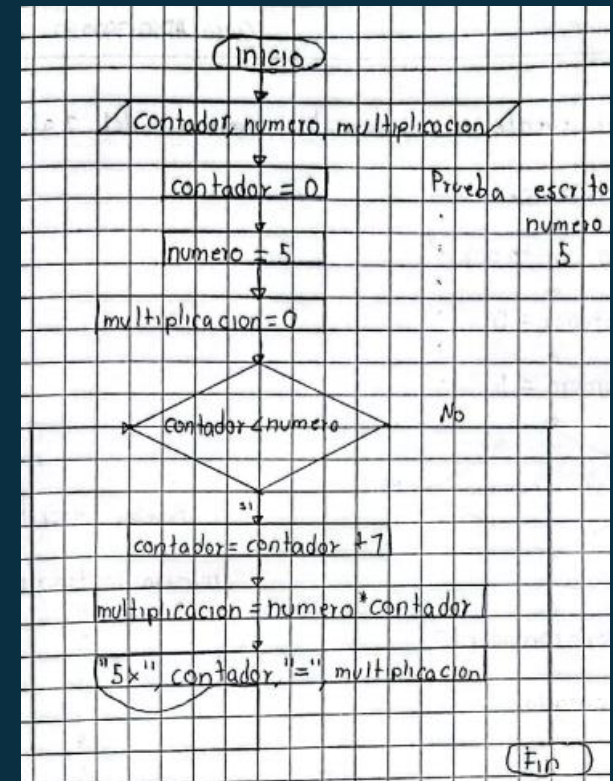 Inicio
contador, numero, multiplicacion
contador = 0
Prueba escrito
numero
numero = 5
5
multiplicacion=0
contador < numero
No
si
contador = contador +1
multiplicacion = numero*contador
"5x", contador, "=", multiplicacion
Fin